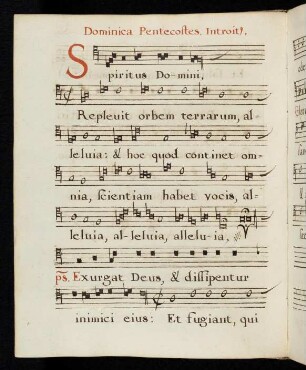 Dominica Pentecoſtes. Introit9.
Spiritus Do-mini,
Repleuit orbem terrarum, al-
leluia: & hoc quod continet om-
nia, ſcientiam habet vocis, al-
leluia, al-leluia, allelu-ia,
ps. Exurgat Deus, & diſſipentur
inimici eius: Et fugiant, qui